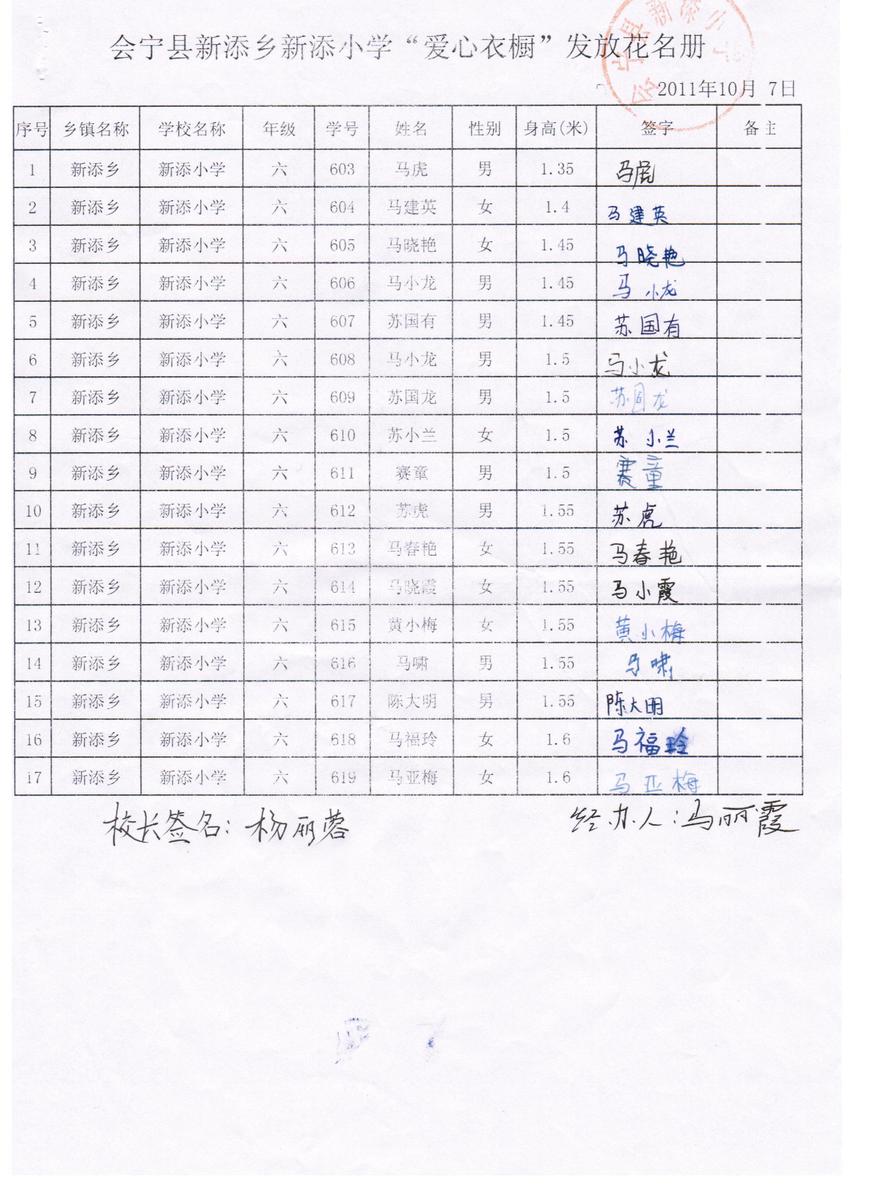 会宁县新添乡新添小学“爱心衣橱”发放花名册
2011年10月 7日
序号 乡镇名称 学校名称 年级 学号 姓名 性别 身高(米) 签字 备注
1 新添乡 新添小学 六 603 马虎 男 1.35 马虎
2 新添乡 新添小学 六 604 马建英 女 1.4 马建英
3 新添乡 新添小学 六 605 马晓艳 女 1.45 马晓艳
4 新添乡 新添小学 六 606 马小龙 男 1.45 马小龙
5 新添乡 新添小学 六 607 苏国有 男 1.45 苏国有
6 新添乡 新添小学 六 608 马小龙 男 1.5 马小龙
7 新添乡 新添小学 六 609 苏国龙 男 1.5 苏国龙
8 新添乡 新添小学 六 610 苏小兰 女 1.5 苏小兰
9 新添乡 新添小学 六 611 赛童 男 1.5 赛童
10 新添乡 新添小学 六 612 苏虎 男 1.55 苏虎
11 新添乡 新添小学 六 613 马春艳 女 1.55 马春艳
12 新添乡 新添小学 六 614 马晓霞 女 1.55 马小霞
13 新添乡 新添小学 六 615 黄小梅 女 1.55 黄小梅
14 新添乡 新添小学 六 616 马啸 男 1.55 马啸
15 新添乡 新添小学 六 617 陈大明 男 1.55 陈大明
16 新添乡 新添小学 六 618 马福玲 女 1.6 马福玲
17 新添乡 新添小学 六 619 马亚梅 女 1.6 马亚梅
校长签名：杨丽蓉 经办人：马丽霞